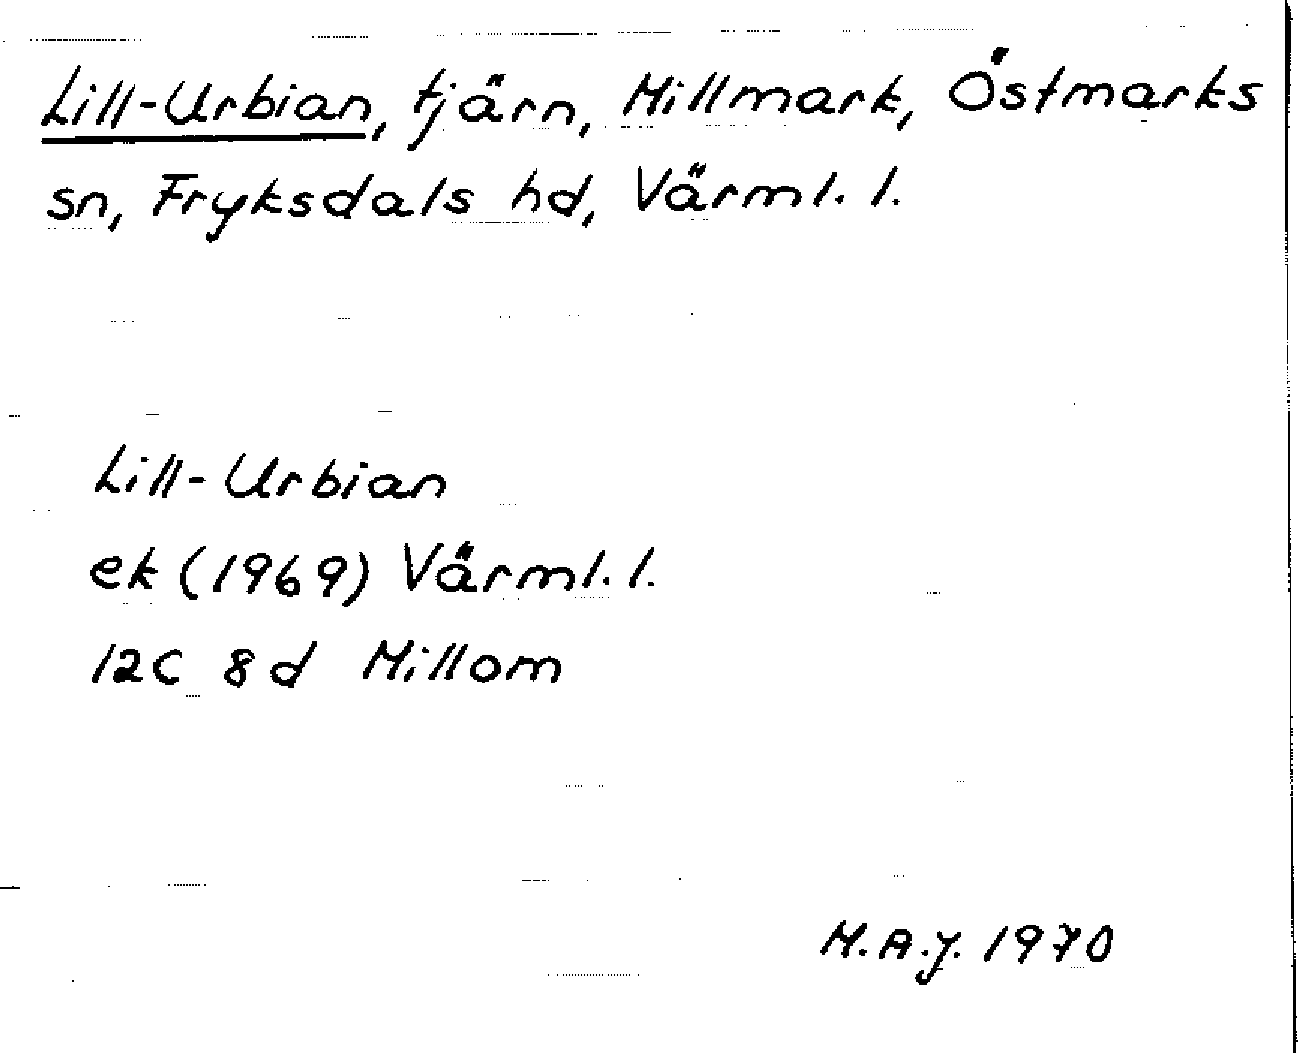 Lill-Urbian, tjärn, Millmark, Östmarks
sn, Fryksdals hd, Värml. l.
Lill-Urbian
ek (1969) Värml. l.
12C 8d Millom
M.A.J. 1970